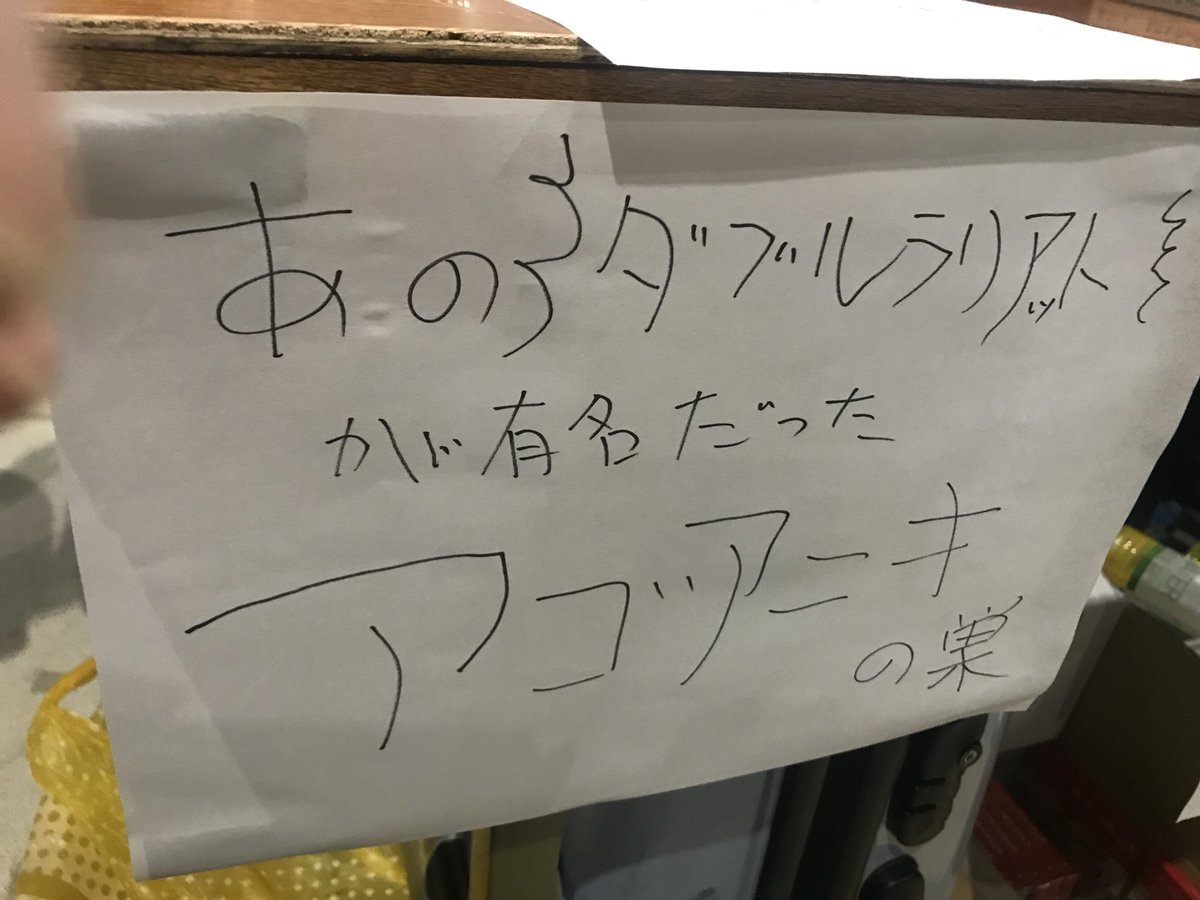 あのダブルラリアット
が有名だった
アゴアニキ
の巣